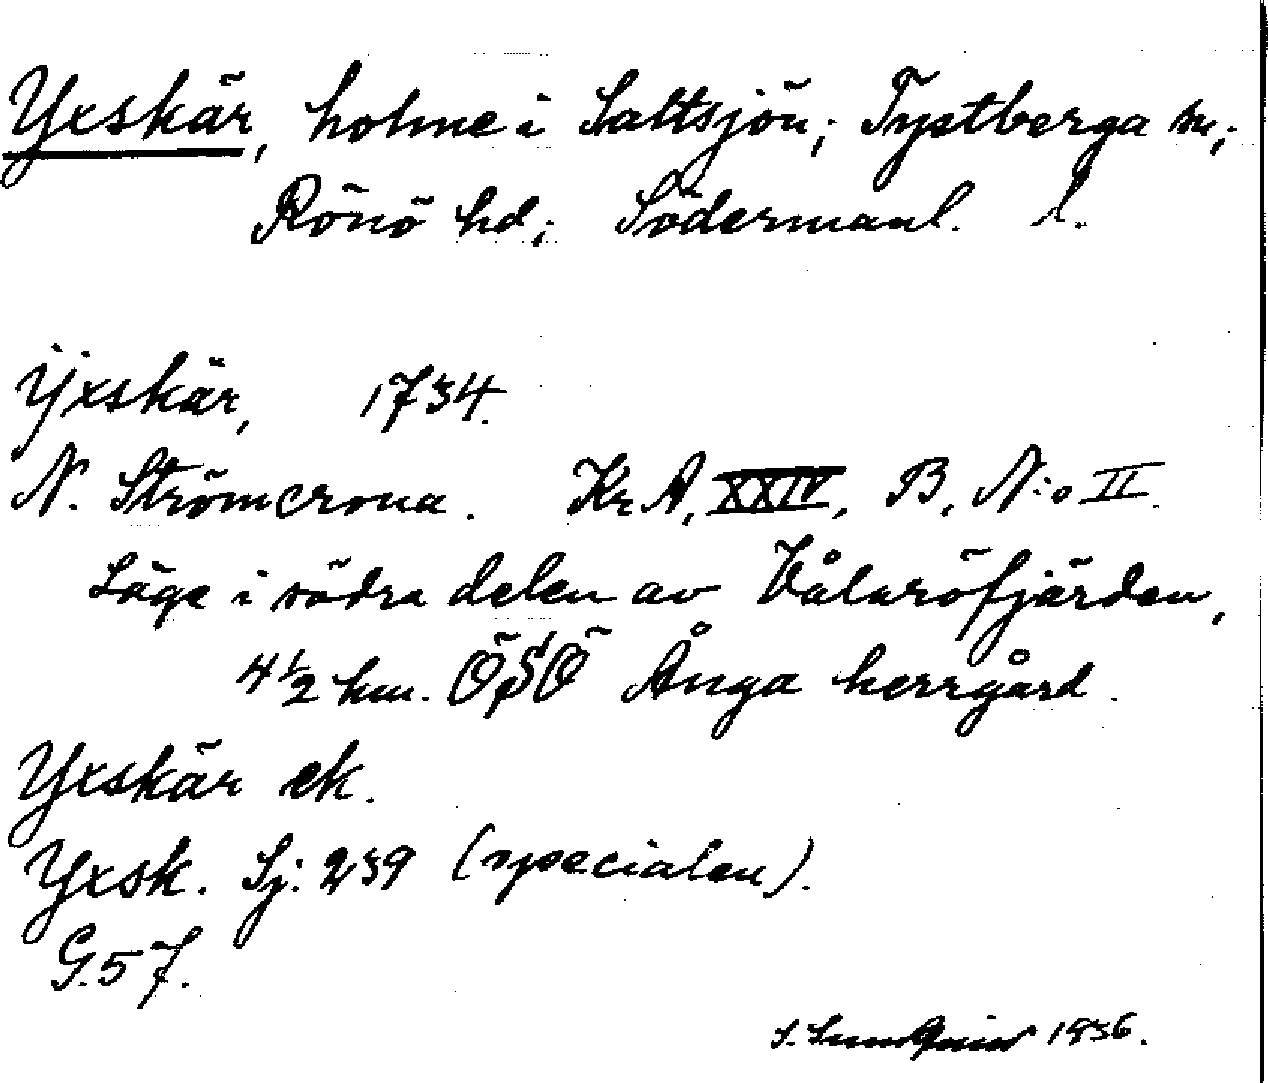 Yxskär, holme i Saltsjön; Tystberga sn;
Rönö hd; Södermanl. l.
Ÿxskär, 1734.
N. Strömcrona. Kr.A, XXIV, B, N:o II.
Läge i södra delen av Vålaröfjärden,
4 1/2 km. ÖSÖ Ånga herrgård.
Yxskär ek.
Yxsk. Sj: 239 (specialen).
G.57.
S. 1936.